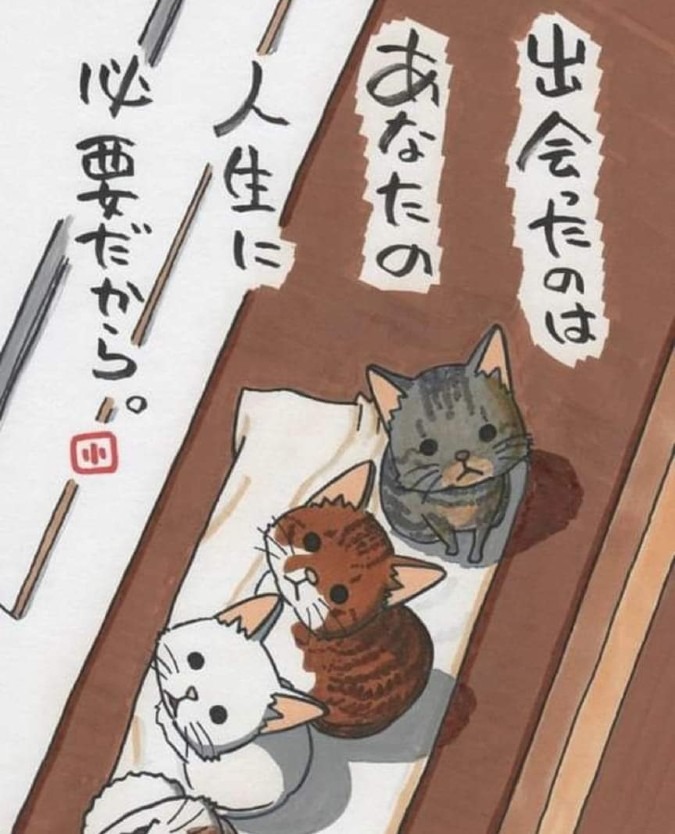 出会ったのは
あなたの
人生に
必要だから。
小